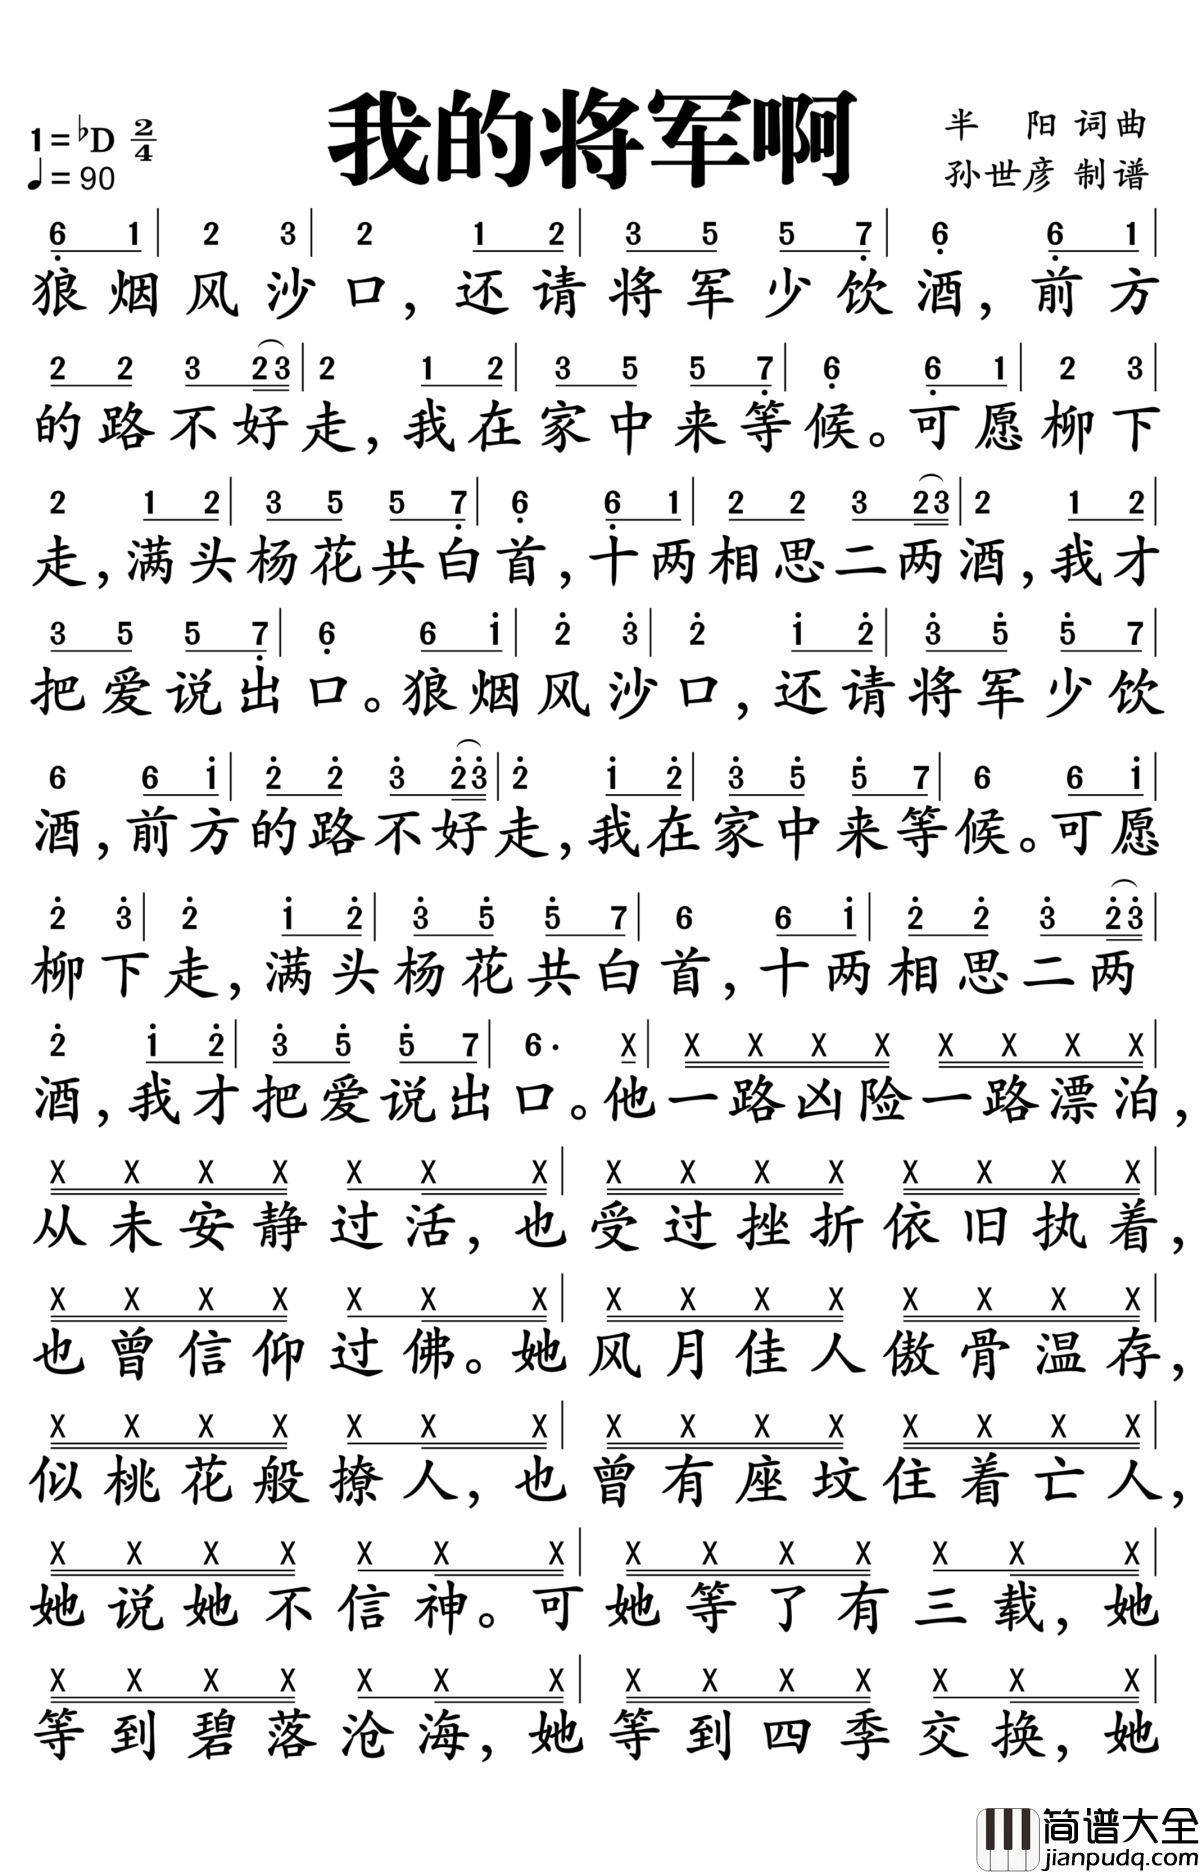 我的将军啊
1=♭D 2/4
♩=90
半 阳 词曲
孙世彦 制谱
6 1 | 2 3 | 2 1 2 | 3 5 5 7 | 6 6 1 |
狼烟风沙口，还请将军少饮酒，前方
2 2 3 2 3 | 2 1 2 | 3 5 5 7 | 6 6 1 | 2 3 |
的路不好走，我在家中来等候。可愿柳下
2 1 2 | 3 5 5 7 | 6 6 1 | 2 2 3 2 3 | 2 1 2 |
走，满头杨花共白首，十两相思二两酒，我才
3 5 5 7 | 6 6 1 | 2 3 | 2 1 2 | 3 5 5 7 |
把爱说出口。狼烟风沙口，还请将军少饮
6 6 1 | 2 2 3 2 3 | 2 1 2 | 3 5 5 7 | 6 6 1 |
酒，前方的路不好走，我在家中来等候。可愿
2 3 | 2 1 2 | 3 5 5 7 | 6 6 1 | 2 2 3 2 3 |
柳下走，满头杨花共白首，十两相思二两
2 1 2 | 3 5 5 7 | 6· X | X X X X X X X X |
酒，我才把爱说出口。他一路凶险一路漂泊，
X X X X X X X | X X X X X X X X |
从未安静过活，也受过挫折依旧执着，
X X X X X X X | X X X X X X X X |
也曾信仰过佛。她风月佳人傲骨温存，
X X X X X X X | X X X X X X X X |
似桃花般撩人，也曾有座坟住着亡人，
X X X X X X X | X X X X X X X |
她说她不信神。可她等了有三载，她
X X X X X X X | X X X X X X X |
等到碧落沧海，她等到四季交换，她
简谱大全
jianpudq.com